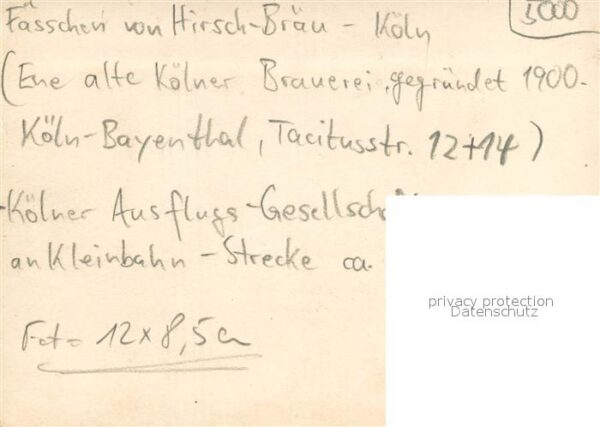 5000
Fässchen von Hirsch-Bräu - Köln
(Ene alte Kölner Brauerei, gegründet 1900-
Köln-Bayenthal, Tacitusstr. 12+14)
-Kölner Ausflugs-Gesellscha
an Kleinbahn - Strecke ca.
Foto 12 x 8,5 cm
privacy protection
Datenschutz